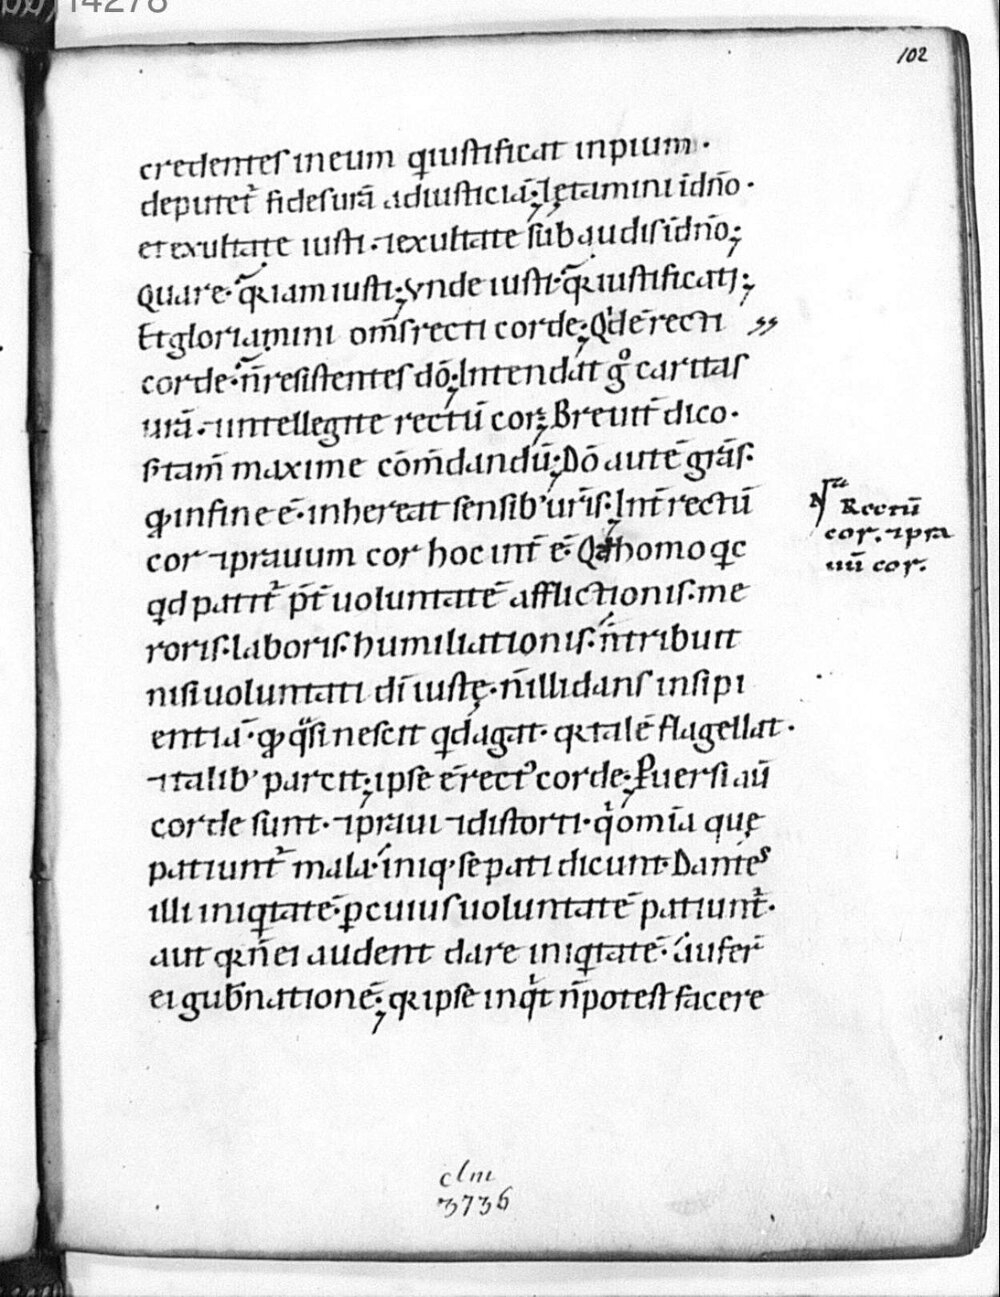 102
credentes in eum qui iustificat inpium ·
deputet᷑ fides ur̄a ad iusticiā; Lętamini ī dn̄o ·
et exultate iusti · ⁊ exultate sub audis ī dn̄o;
Quare · qn̄iam iusti; Vnde iusti · qr̄ iustificati;
Et gloriamini om̄s recti corde; Qd ē recti
corde · n̄ resistentes dō; Intendat gͦ caritas
ur̄a · intellegite rectū cor; Breuit᷑ dico ·
s; tam̄ maxime cōm̄dandū; Dō aute᷑ grās ·
ꝙ in fine ē · inhereat sensibꝰ ur̄is; Int᷑ rectū
cor ⁊ prauum cor hoc int᷑ ē · Qd homo qc
qd patit᷑ p̄t᷑ uoluntatē afflictionis · me
roris · laboris · humiliationis · n̄ tribuit
nisi uoluntati dī iustę · n̄ illi dans insipi
entiā · ꝙ qͣsi nescit qd agat · qr talē flagellat ·
⁊ talibꝰ parcit; ipse ē rectꝰ corde; Puersi aū
corde sunt · ⁊ praui ⁊ distorti · qͥ omīa quę
patiunt᷑ mala · iniqͥ se pati dicunt · Dantes
illi iniqͥtatē · ꝑ cuius uoluntatē patiunt᷑ ·
aut qr n̄ ei audent dare iniqͥtatē · aufer̄
ei gub̄nationē; qr ipse inqͥt n̄ potest facere
Nͣ Rectū
cor · ⁊ pra
uū cor ·
clm
3736